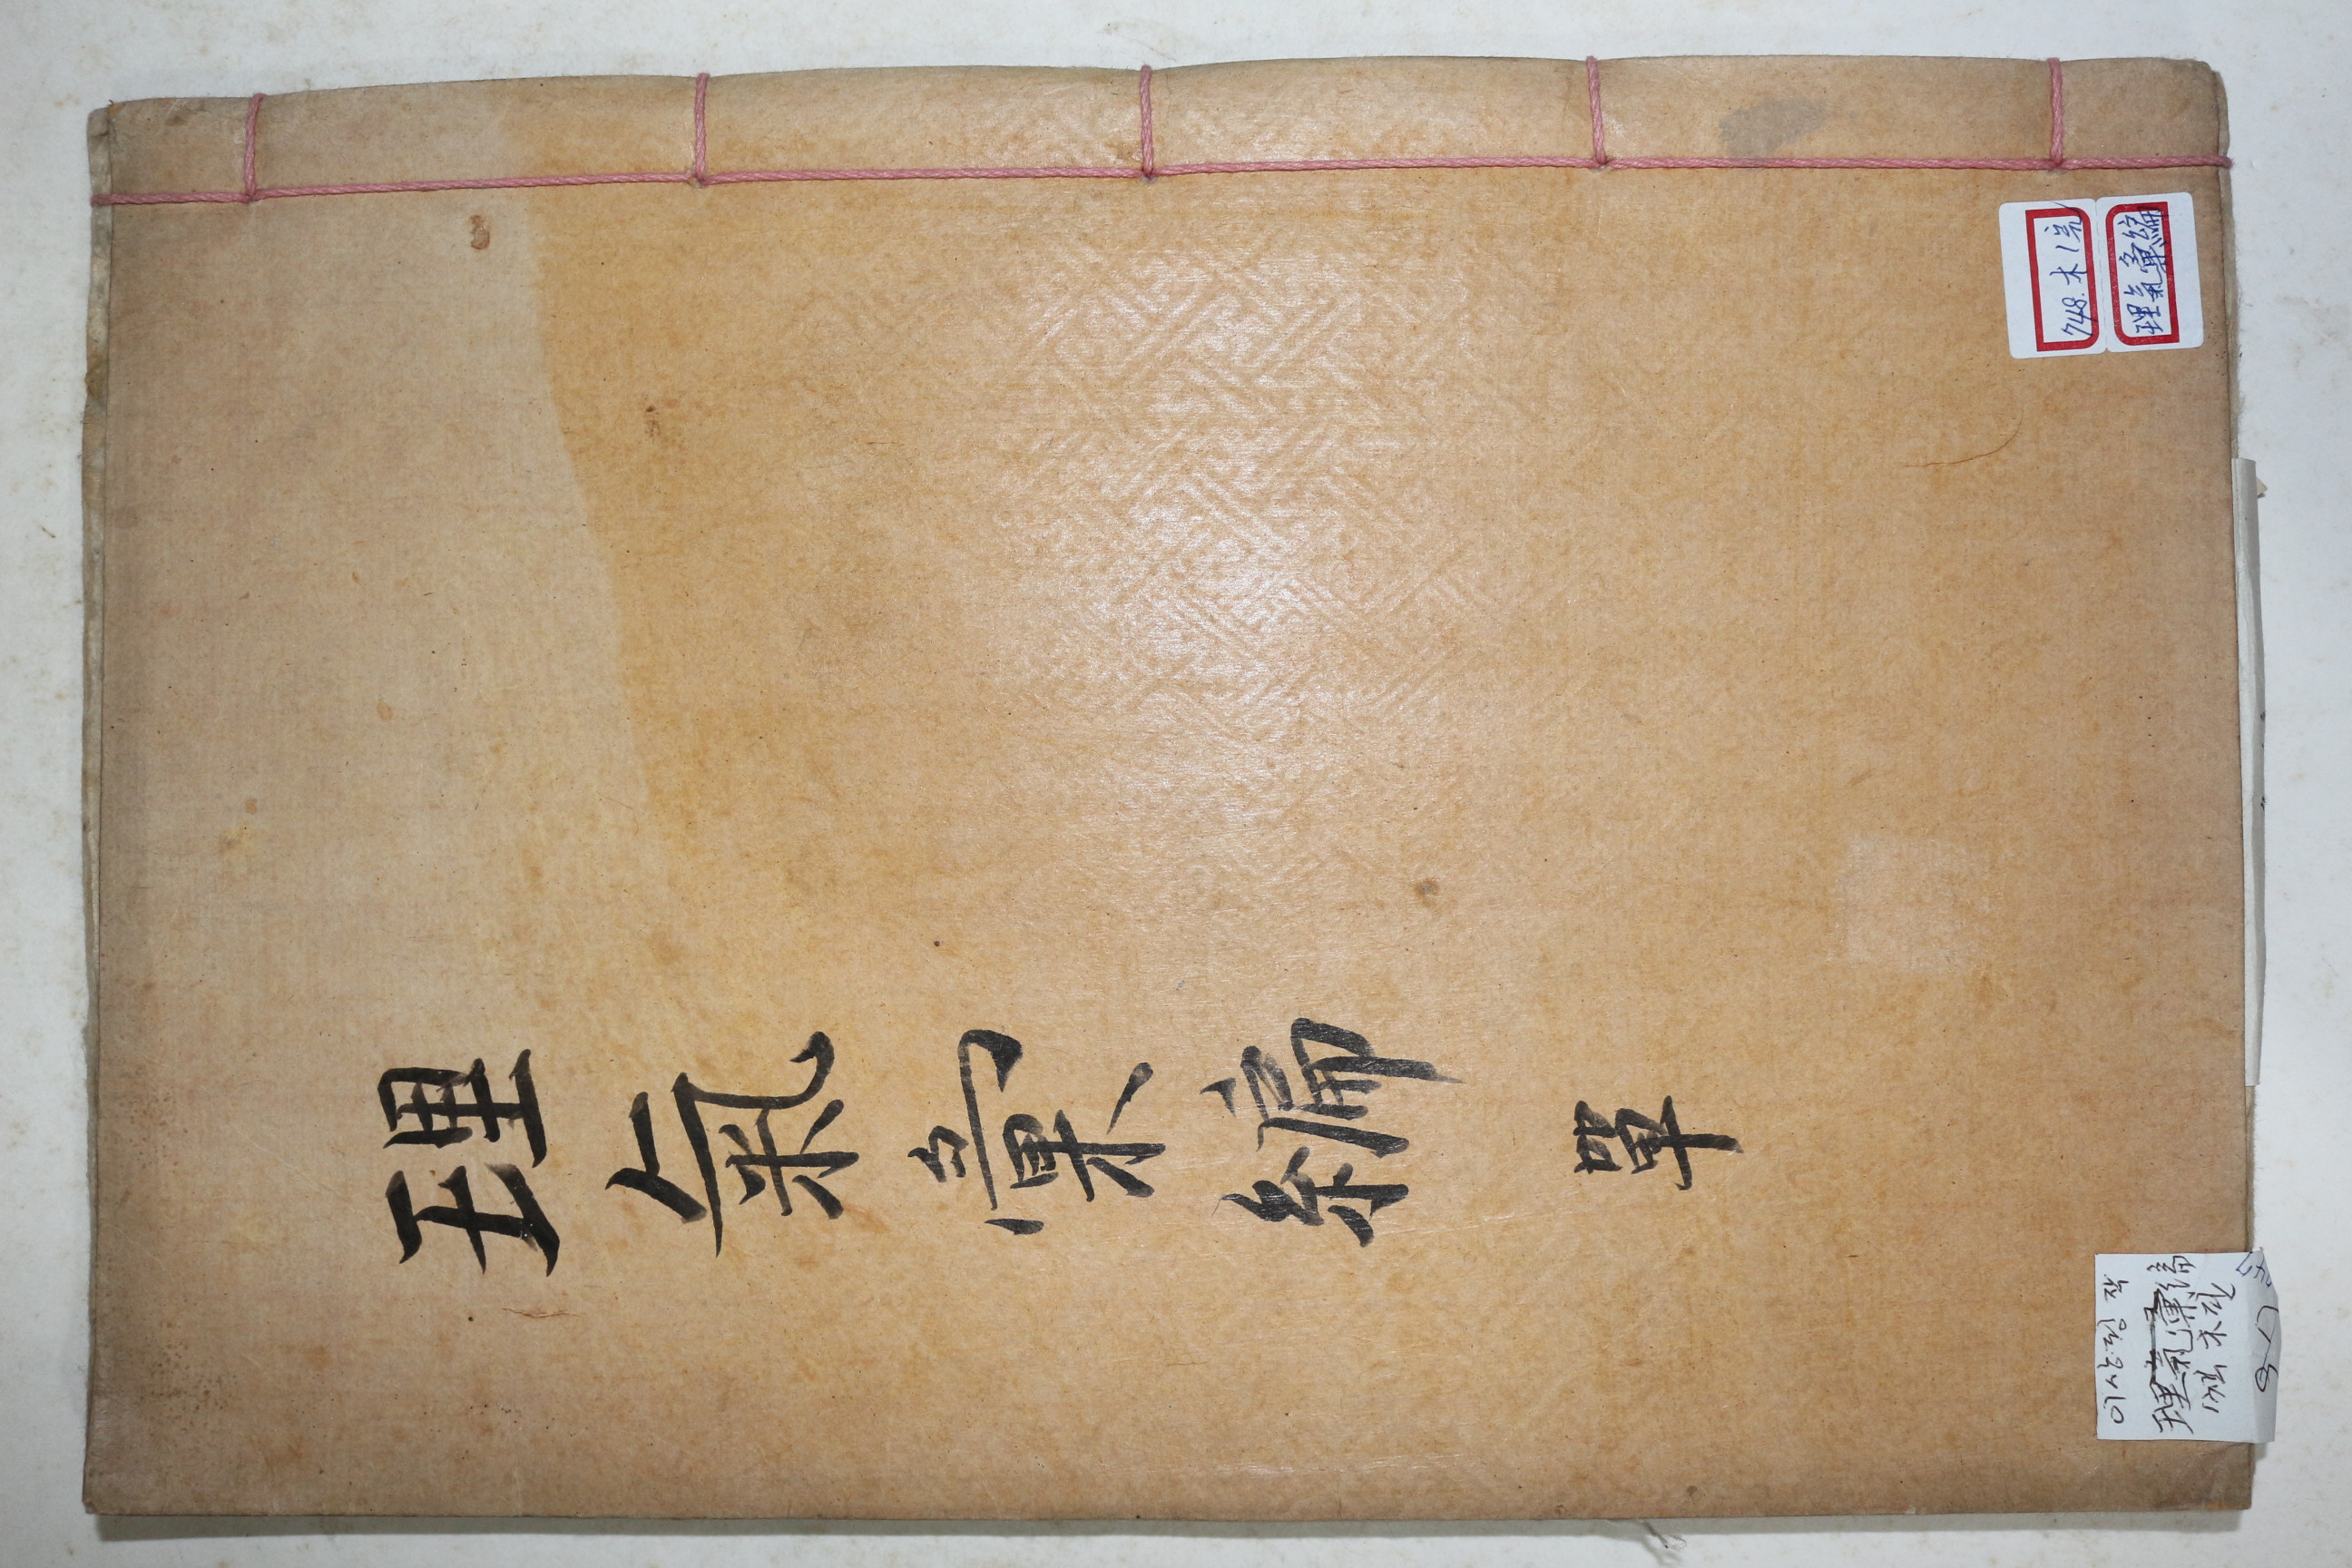 理氣彙編
單
748. 木1完
理氣彙編
이상정 작
理氣彙編
1책 木판